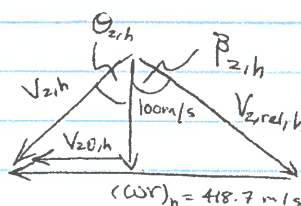 θ₂,ₕ
β₂,ₕ
V₂,ₕ
100m/s
V₂,rel,h
V₂θ,ₕ
(ωr)ₕ = 418.7 m/s